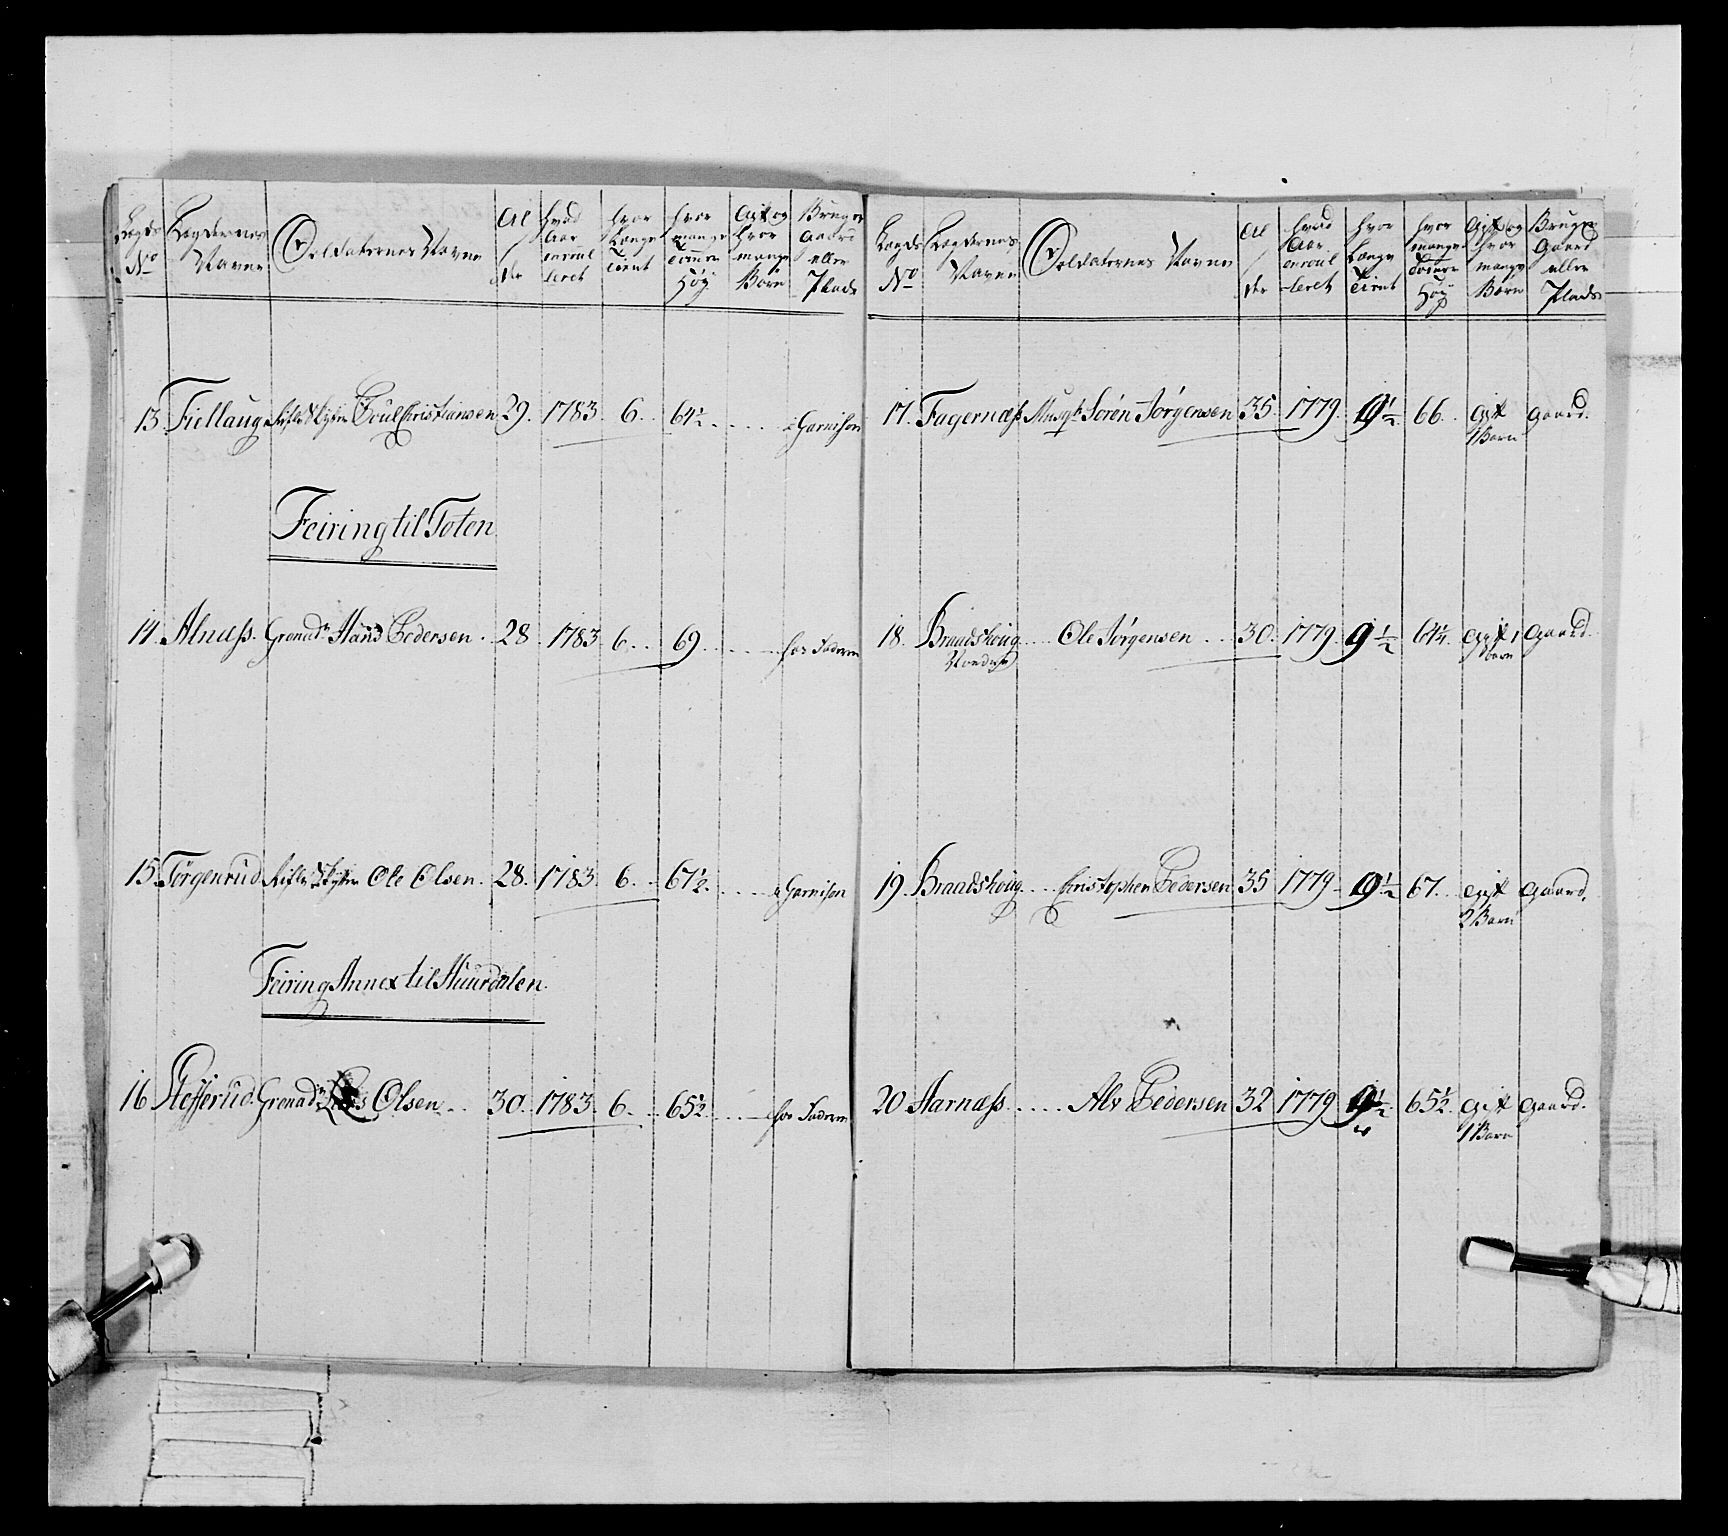 Legds No
Legdernes Navne
Soldaternes Navne
Al/der
hvad Aar enroulleret
hvor Længe Tient
hvor mange Tommer Høÿ
Gift og hvor mange Børn
Bruger Gaard eller Plads
13. Fiellaug Poul Christiansen 29. 1783. 6. 64½ Garnison
Feiring til Toten
14. Alnæss. Grenadr. Hans Pedersen 28. 1783. 6. 69 hos Faderen
15. Torgenrud Ole Olsen. 28. 1783. 6. 67½. Garnison
Feiring Annex til Huurdalen.
16. Steffsrud. Grenadr. Olsen 30. 1783. 6. 65½. hos Faderen
Legds No
Legdernes Navne
Soldaternes Navne
Al/der
hvad Aar enroulleret
hvor Længe Tient
hvor mange Tommer Høÿ
Gift og hvor mange Børn
Bruger Gaard eller Plads
17. Fagernæss Musqt. Sorën Jörgensen 35. 1779. 9½ 66. Gift Gaard.
1 Barn
18. Braadshoug Ole Jörgensen 30. 1779. 9½ 64¼. Gift 1 Gaard.
Nordre barn
19. Braadshoug Christopher Pedersen 35 1779. 9½ 67. Gift Gaard.
2 Barn
20 Harnæss. Alv Pedersen 32 1779 9½ 65½. Gift Gaard.
1 Barn